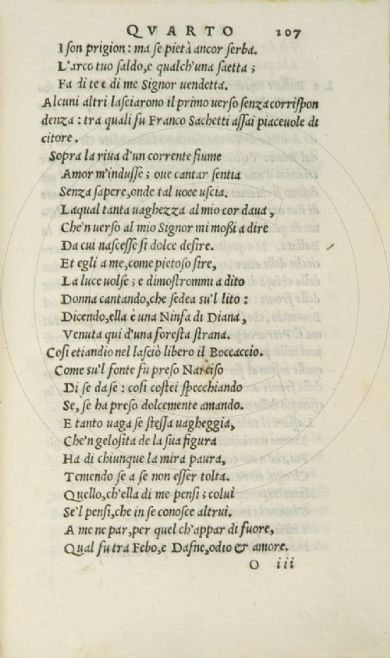 QVARTO 107
I son prigion: ma se pietà ancor serba.
L'arco tuo saldo, e qualch'una saetta;
Fa di te e di me Signor uendetta.
Alcuni altri lasciarono il primo uerso senza corrispon
denza: tra quali fu Franco Sachetti assai piaceuole di
citore.
Sopra la riua d'un corrente fiume
Amor m'indusse; oue cantar sentia
Senza sapere, onde tal uoce uscia.
Laqual tanta uaghezza al mio cor daua,
Che'n uerso al mio Signor mi mossi a dire
Da cui nascesse sì dolce desire.
Et egli a me, come pietoso sire,
La luce uolse; e dimostrommi a dito
Donna cantando, che sedea su'l lito:
Dicendo, ella è una Ninfa di Diana,
Venuta qui d'una foresta strana.
Cosi etiandio nel lasciò libero il Boccaccio.
Come su'l fonte fu preso Narciso
Di se da se: cosi costei specchiando
Se, se ha preso dolcemente amando.
E tanto uaga se stessa uagheggia,
Che'n gelosita de la sua figura
Ha di chiunque la mira paura,
Temendo se a se non esser tolta.
Quello, ch'ella di me pensi; colui
Se'l pensi, che in se conosce altrui.
A me ne par, per quel ch'appar di fuore,
Qual fu tra Febo, e Dafne, odio & amore.
O iii